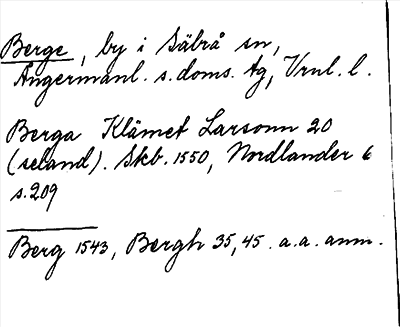 Berge, by i Säbrå sn,
Ångermanl. s. doms. tg, Vrnl. l.
Berga Klämet Larsonn 20
(seland). Skb. 1550, Nordlander 6
s. 209
Berg 1543, Bergh 35, 45. a.a. anm.